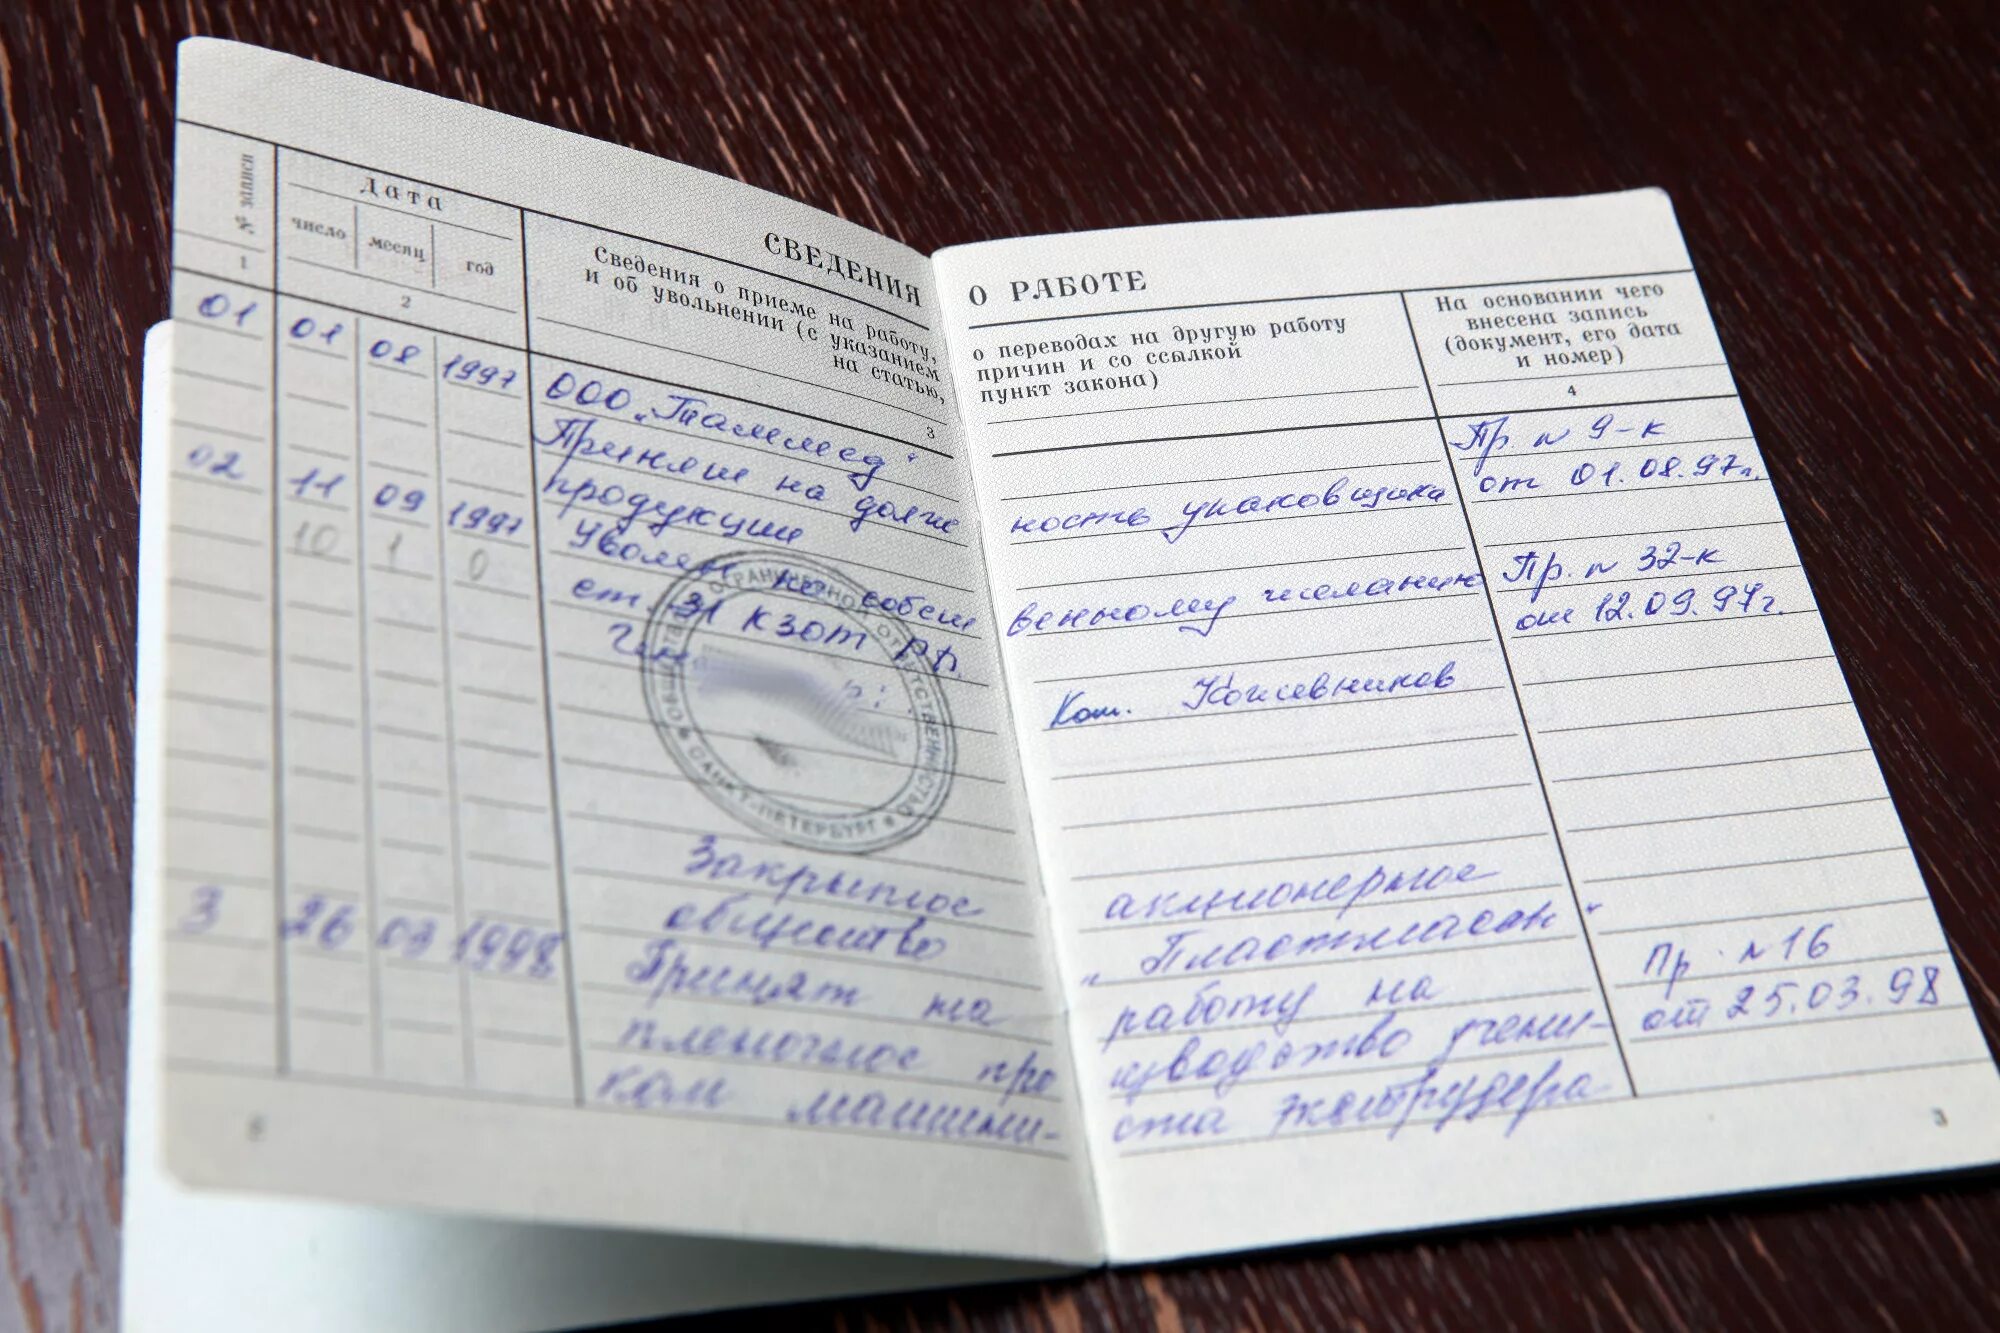 СВЕДЕНИЯ О РАБОТЕ
№ записи
Дата
число месяц год
Сведения о приеме на работу, о переводах на другую работу
и об увольнении (с указанием причин и со ссылкой
на статью, пункт закона)
На основании чего
внесена запись
(документ, его дата
и номер)
1 2 3 4
01 01 08 1997 ООО „Таммед" Пр. № 9-к
Принят на должность упаковщика от 01.08.97г.
продукции
02 11 09 1997 Уволен по собственному желанию Пр. № 32-к
10 1 0
ст. 31 КЗОТ РФ. от 12.09.97г.
Ген. Кожевников
ОБЩЕСТВО С ОГРАНИЧЕННОЙ ОТВЕТСТВЕННОСТЬЮ
САНКТ-ПЕТЕРБУРГ
Закрытое акционерное
общество „Пластмассы"
3 26 03 1998 Принят на работу на Пр. № 16
пленочное производство учени- от 25.03.98
ком машини- ста экструдера
3